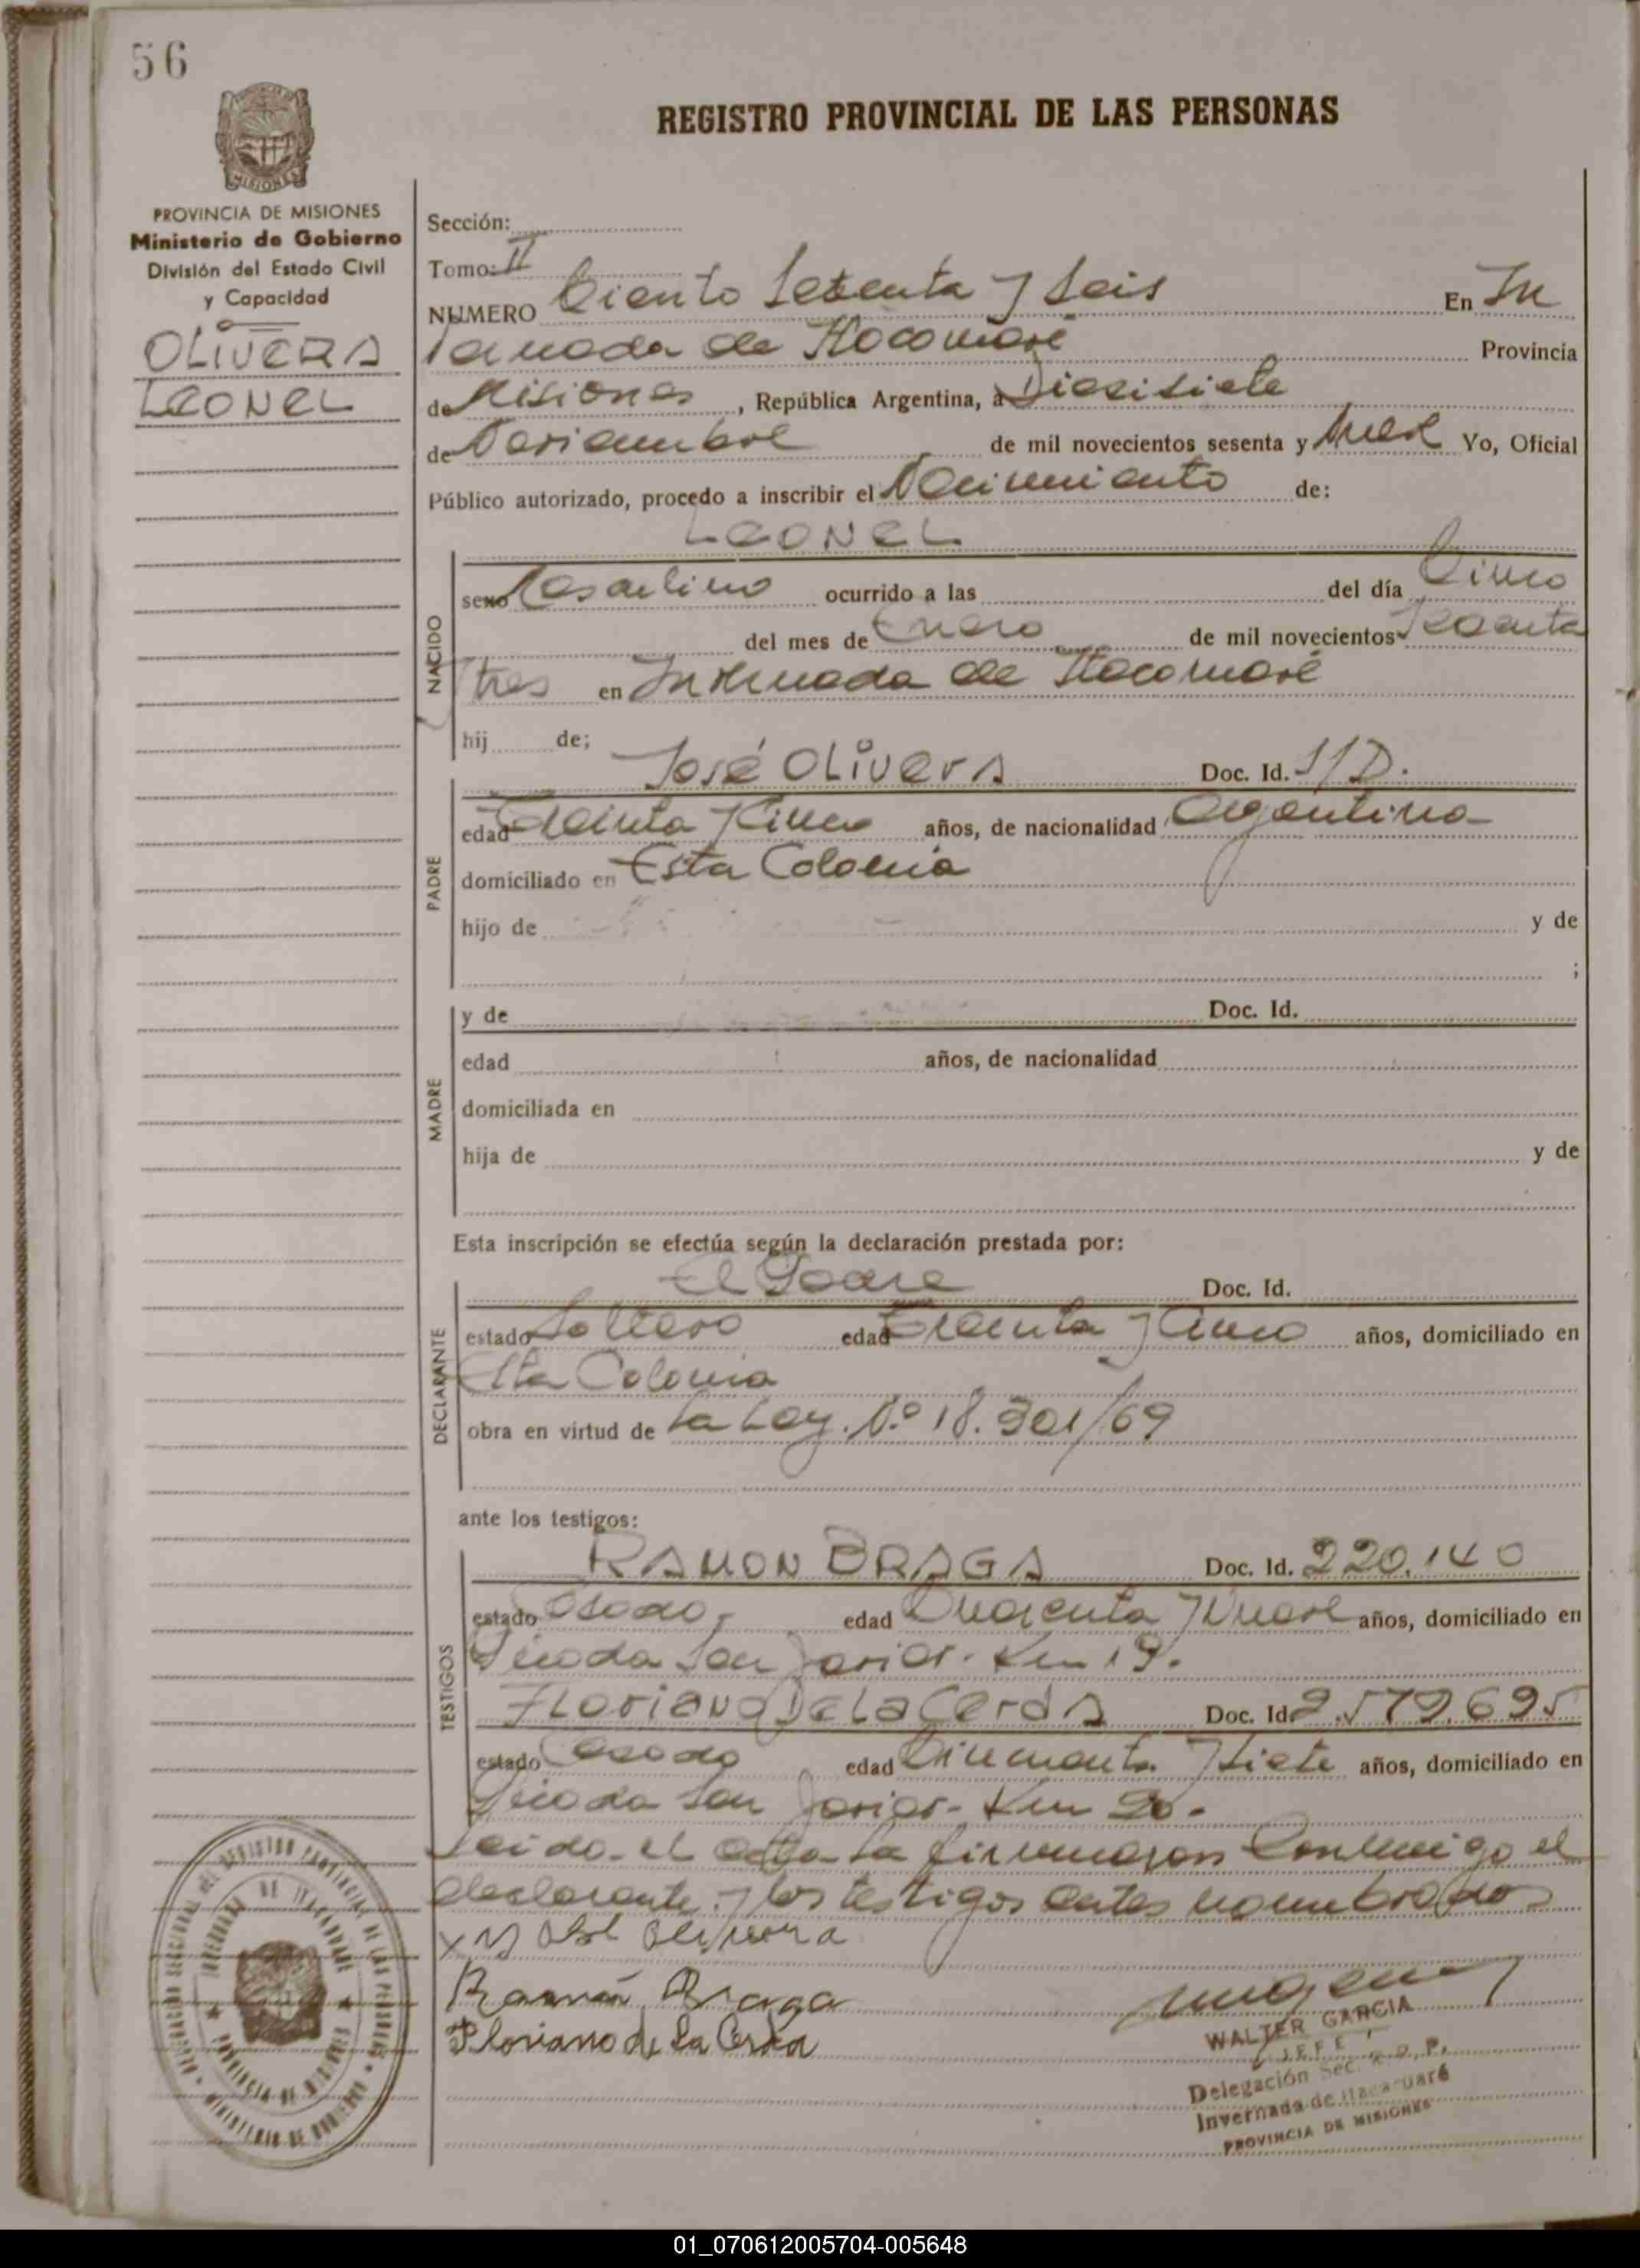 56
REGISTRO PROVINCIAL DE LAS PERSONAS
MISIONES
PROVINCIA DE MISIONES
Ministerio de Gobierno
División del Estado Civil
y Capacidad
OLIVERA
LEONEL
Sección:
Tomo: II
NUMERO Ciento Setenta y Seis En In
vernada de Itacaruaré Provincia
de Misiones, República Argentina, a Diecisiete
de Noviembre de mil novecientos sesenta y nueve Yo, Oficial
Público autorizado, procedo a inscribir el Nacimiento de:
LEONEL
NACIDO
sexo Masculino ocurrido a las del día Cinco
del mes de Enero de mil novecientos Sesenta
y tres en Invernada de Itacaruaré
hij de;
PADRE
José OLIVERA Doc. Id. S/D.
edad Treinta y Cinco años, de nacionalidad Argentina
domiciliado en Esta Colonia
hijo de y de
;
MADRE
y de Doc. Id.
edad años, de nacionalidad
domiciliada en
hija de y de
Esta inscripción se efectúa según la declaración prestada por:
DECLARANTE
El Padre Doc. Id.
estado Soltero edad Treinta y Cinco años, domiciliado en
Esta Colonia
obra en virtud de la Ley. Nº 18.301/69
ante los testigos:
TESTIGOS
RAMON BRAGA Doc. Id. 220.140
estado Casado, edad Cuarenta y Nueve años, domiciliado en
Picada San Javier. Km 19.
Floriano De La Cerda Doc. Id. 2.579.695
estado Casado edad Cincuenta y Siete años, domiciliado en
Picada San Javier - Km 20.
Leida el acta la firmaron Conmigo el
declarante y los testigos antes nombrados
Olivera
Ramón Braga
Floriano de La Cerda
WALTER GARCIA
JEFE
Delegación Sec. R. P. P.
Invernada de Itacaruaré
PROVINCIA DE MISIONES
01_070612005704-005648